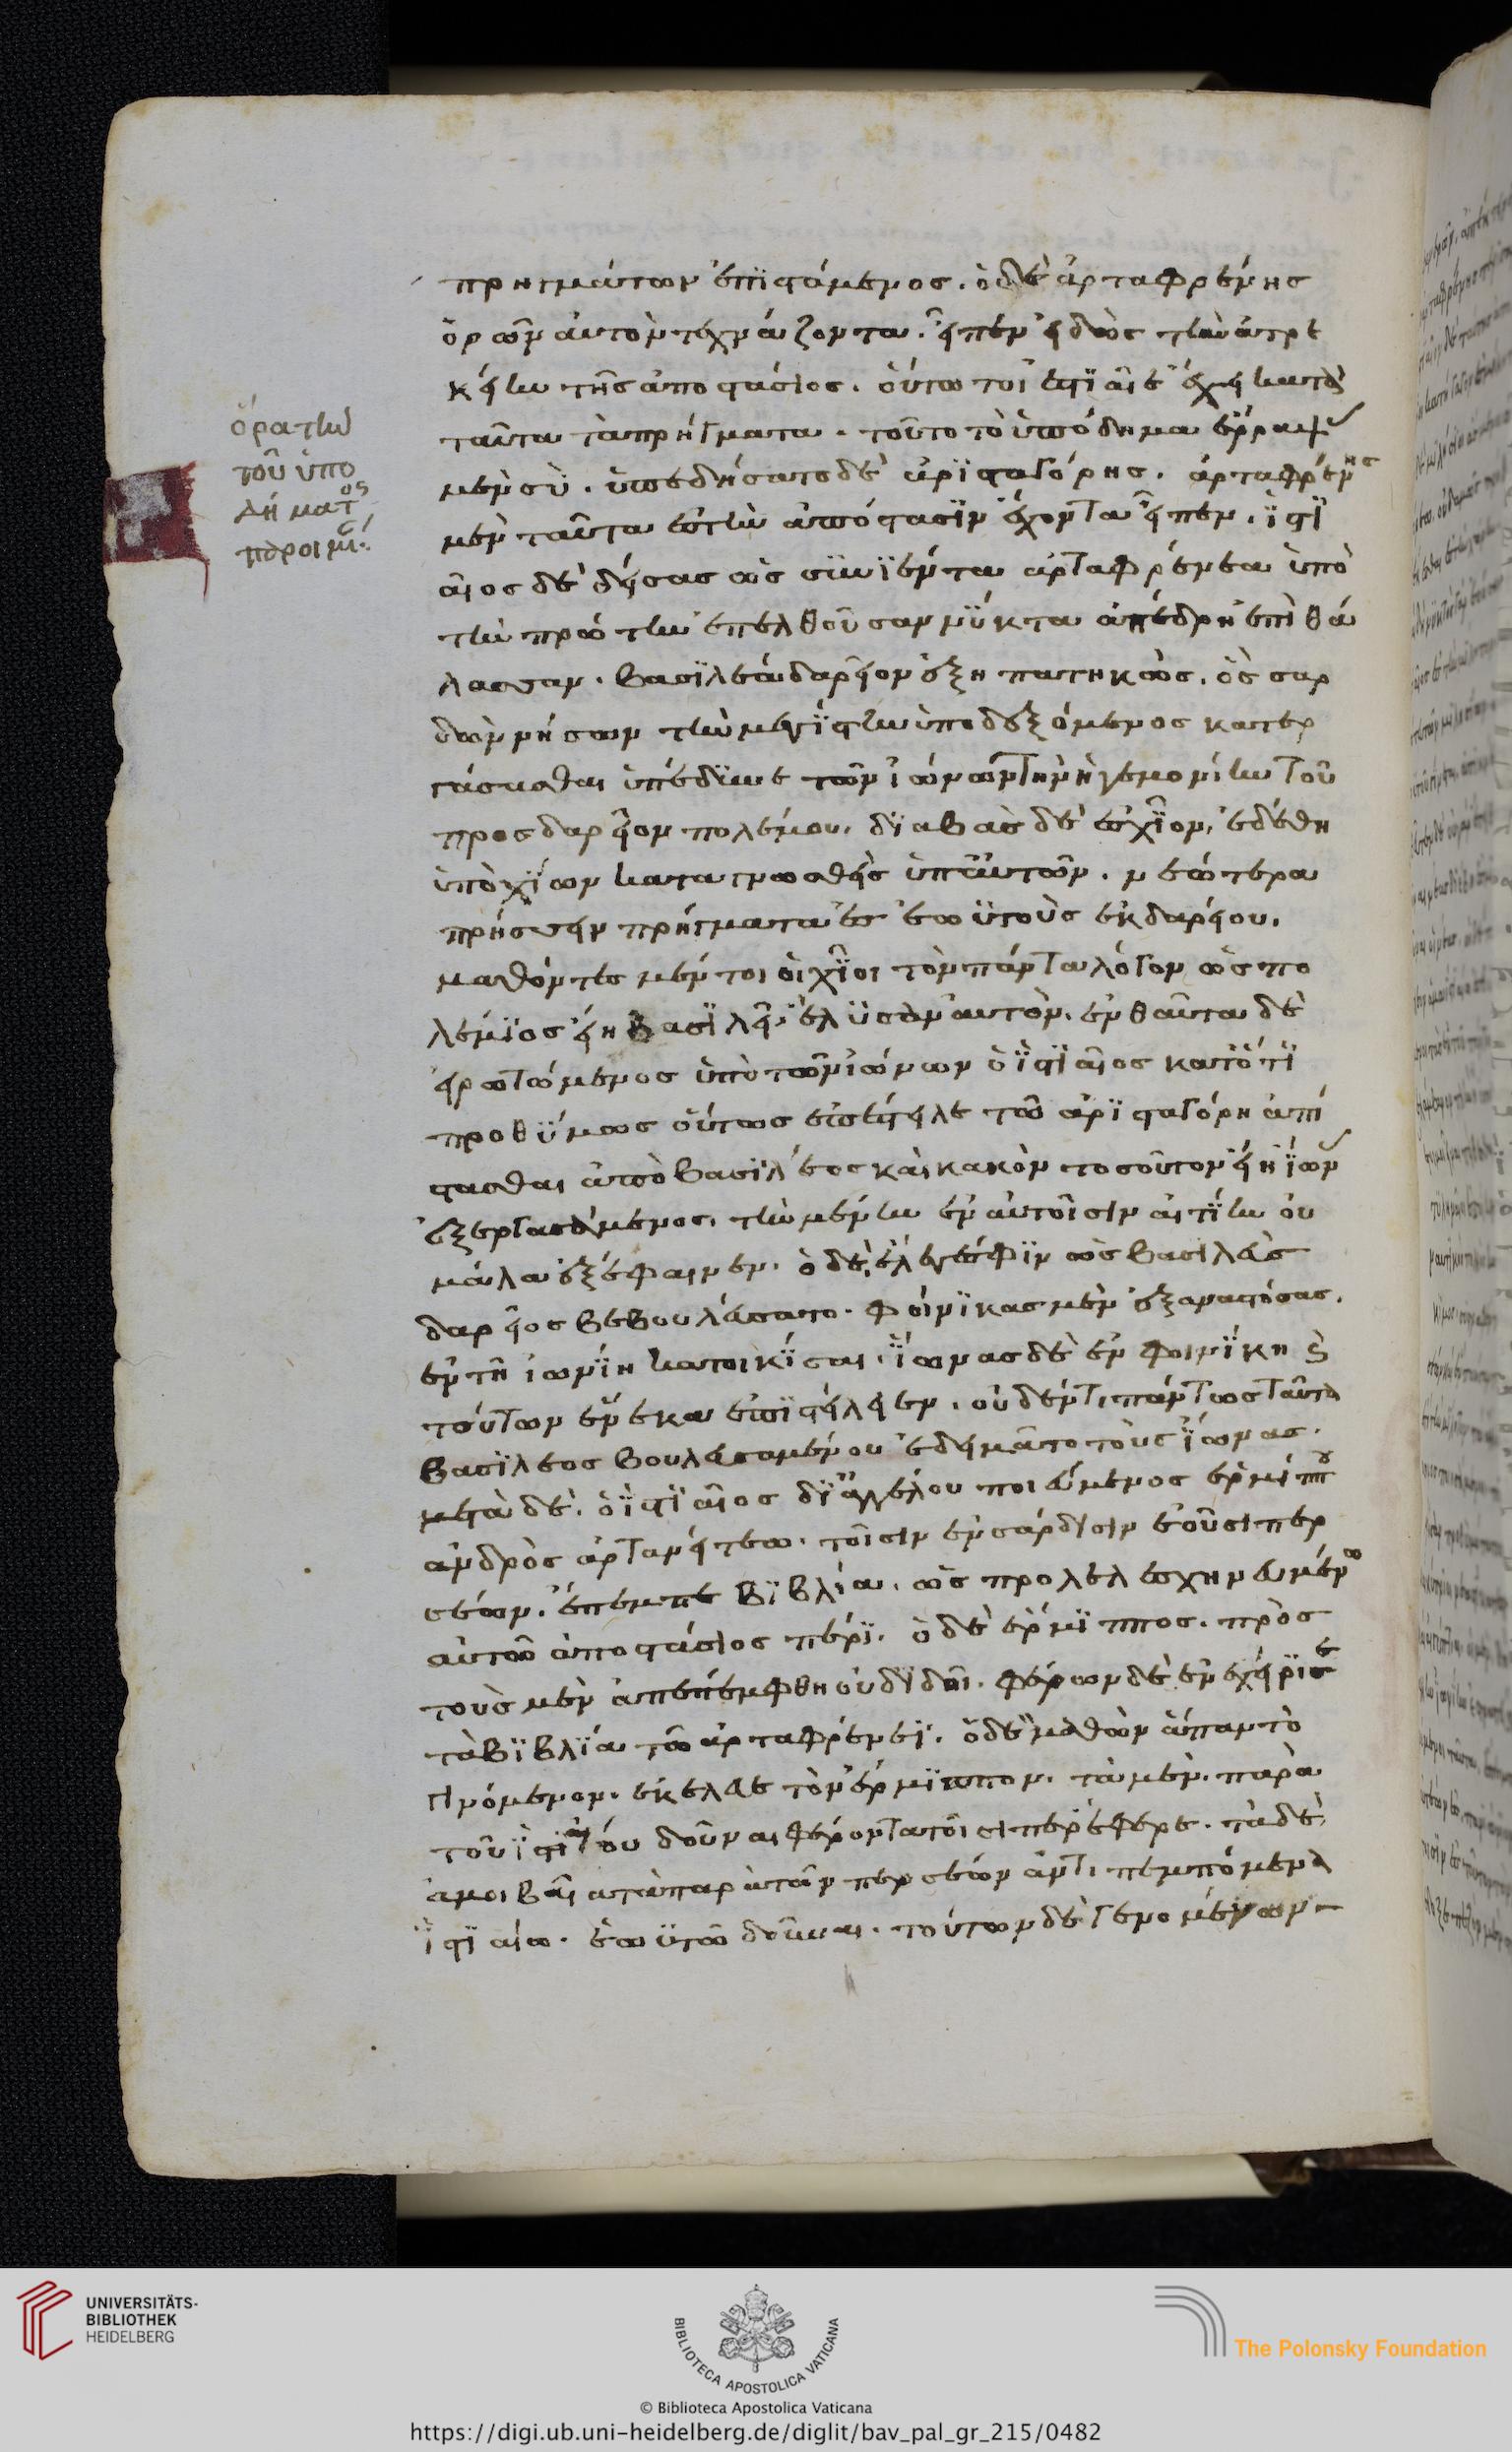 πρηγμάτων ἐπϊστάμενος. ὁ δὲ ἀρταφρένης
ὁρῶν αὐτὸν τεχνάζοντα. εἶπεν εἰδὼς τὴν ἀτρε
κείην τῆς ἀποστάσιος. οὕτω τοι ἱστϊαῖε ἔχει κατὰ
ταῦτα τὰ πρήγματα. τοῦτο τὸ ὑπόδημα ἔρραψ
μὲν σὺ. ὑπεδήσατο δὲ ἀρϊσταγόρης. ἀρταφρένης
μὲν ταῦτα ἐς τὴν ἀπόστασϊν ἔχοντα εἶπεν. ἱστϊ
αῖος δὲ δείσας ὡς συνϊέντα ἀρταφρένεα ὑπὸ
τὴν πρώτην ἐπελθοῦσαν νύκτα ἀπέδρη ἐπὶ θά
λασσαν. βασϊλέα δαρεῖον ἐξηπατηκὼς. ὃς σαρ
δὼ νῆσον τὴν μεγίστην ὑποδεξάμενος κατερ
γάσασθαι ὑπέδϋνε τῶν ἰώνων τὴν ἡγεμονίην τοῦ
προς δαρεῖον πολέμου. διαβὰς δὲ ἐς χῖον, ἐδέθη
ὑπὸ χίων καταγνωσθεὶς ὑπ᾽ αὐτῶν. νεώτερα
πρήσσειν πρήγματα ἐς ἑωϋτοὺς ἐκ δαρείου.
μαθόντες μέντοι οἱ χῖοι τὸν πάντα λόγον ὡς πο
λέμϊος εἴη βασϊλεῖ ἔλϋσαν αὐτὸν. ἐνθαῦτα δὲ
εἰρωτώμενος ὑπὸ τῶν ἰώνων ὁ ἱστϊαῖος κατ᾽ ὅτϊ
προθύμως οὕτως ἐπέστειλε τῶ ἀρϊσταγόρη ἀπί
στασθαι ἀπὸ βασϊλέος καὶ κακὸν τοσοῦτον εἴη ἴων
ἐξεργασάμενος. τὴν μὲν γενομένην αὐτοῖσιν αἰτϊην οὐ
μάλα ἐξέφαινεν. ὁ δὲ ἔλεγέ σφϊν ὡς βασιλεὺς
δαρεῖος βεβουλεύσατο. φοίνϊκας μὲν ἐξαναστήσας.
ἐν τῆ ἰωνϊη κατοικίσαι. ἴωνας δὲ ἐν φοινίκη καὶ
τούτων εἵνεκα ἐπϊστείλειεν. οὐδέν τι πάντως ταῦτα
βασϊλέος βουλευσαμένου ἐδειμάτο τοὺς ἴωνας.
μετὰ δὲ. ὁ ἱστϊαῖος δι᾽ ἀγγέλου ποιεύμενος ἑρμίππου
ἀνδρὸς ἀρταρνείτεω. τοῖσιν ἐν σάρδισιν ἐοῦσι περ
σέων. ἔπεμπε βϊβλία. ὡς προλελεσχηνευμένων
αὐτῶ ἀποστάσιος πέρι. ὁ δὲ ἕρμϊππος. πρὸς
τοὺς μὲν ἀπεπέμφθη οὐ δϊδοῖ. φέρων δὲ ἐνεχείρϊσε
τὰ βϊβλϊα τῶ ἀρταφρένεϊ. ὁ δὲ μαθὼν ἅπαν τὸ
γινόμενον. ἐκέλευε τὸν ἕρμϊππον. τὰ μὲν παρὰ
τοῦ ἱστϊαίου δοῦναι φέροντα τοῖσι περ ἔφερε. τὰ δὲ
ἀμοιβαῖα τὰ παρὰ τῶν περσέων ἀντιπεμπόμενα
ἱστϊαίω. ἑωϋτῶ δοῦναι. τούτων δὲ γενομένων
ὅρα τὴν
τοῦ ὑπο
δήματος
παροιμί
UNIVERSITÄTS-
BIBLIOTHEK
HEIDELBERG
BIBLIOTECA APOSTOLICA VATICANA
The Polonsky Foundation
© Biblioteca Apostolica Vaticana
https://digi.ub.uni-heidelberg.de/diglit/bav_pal_gr_215/0482